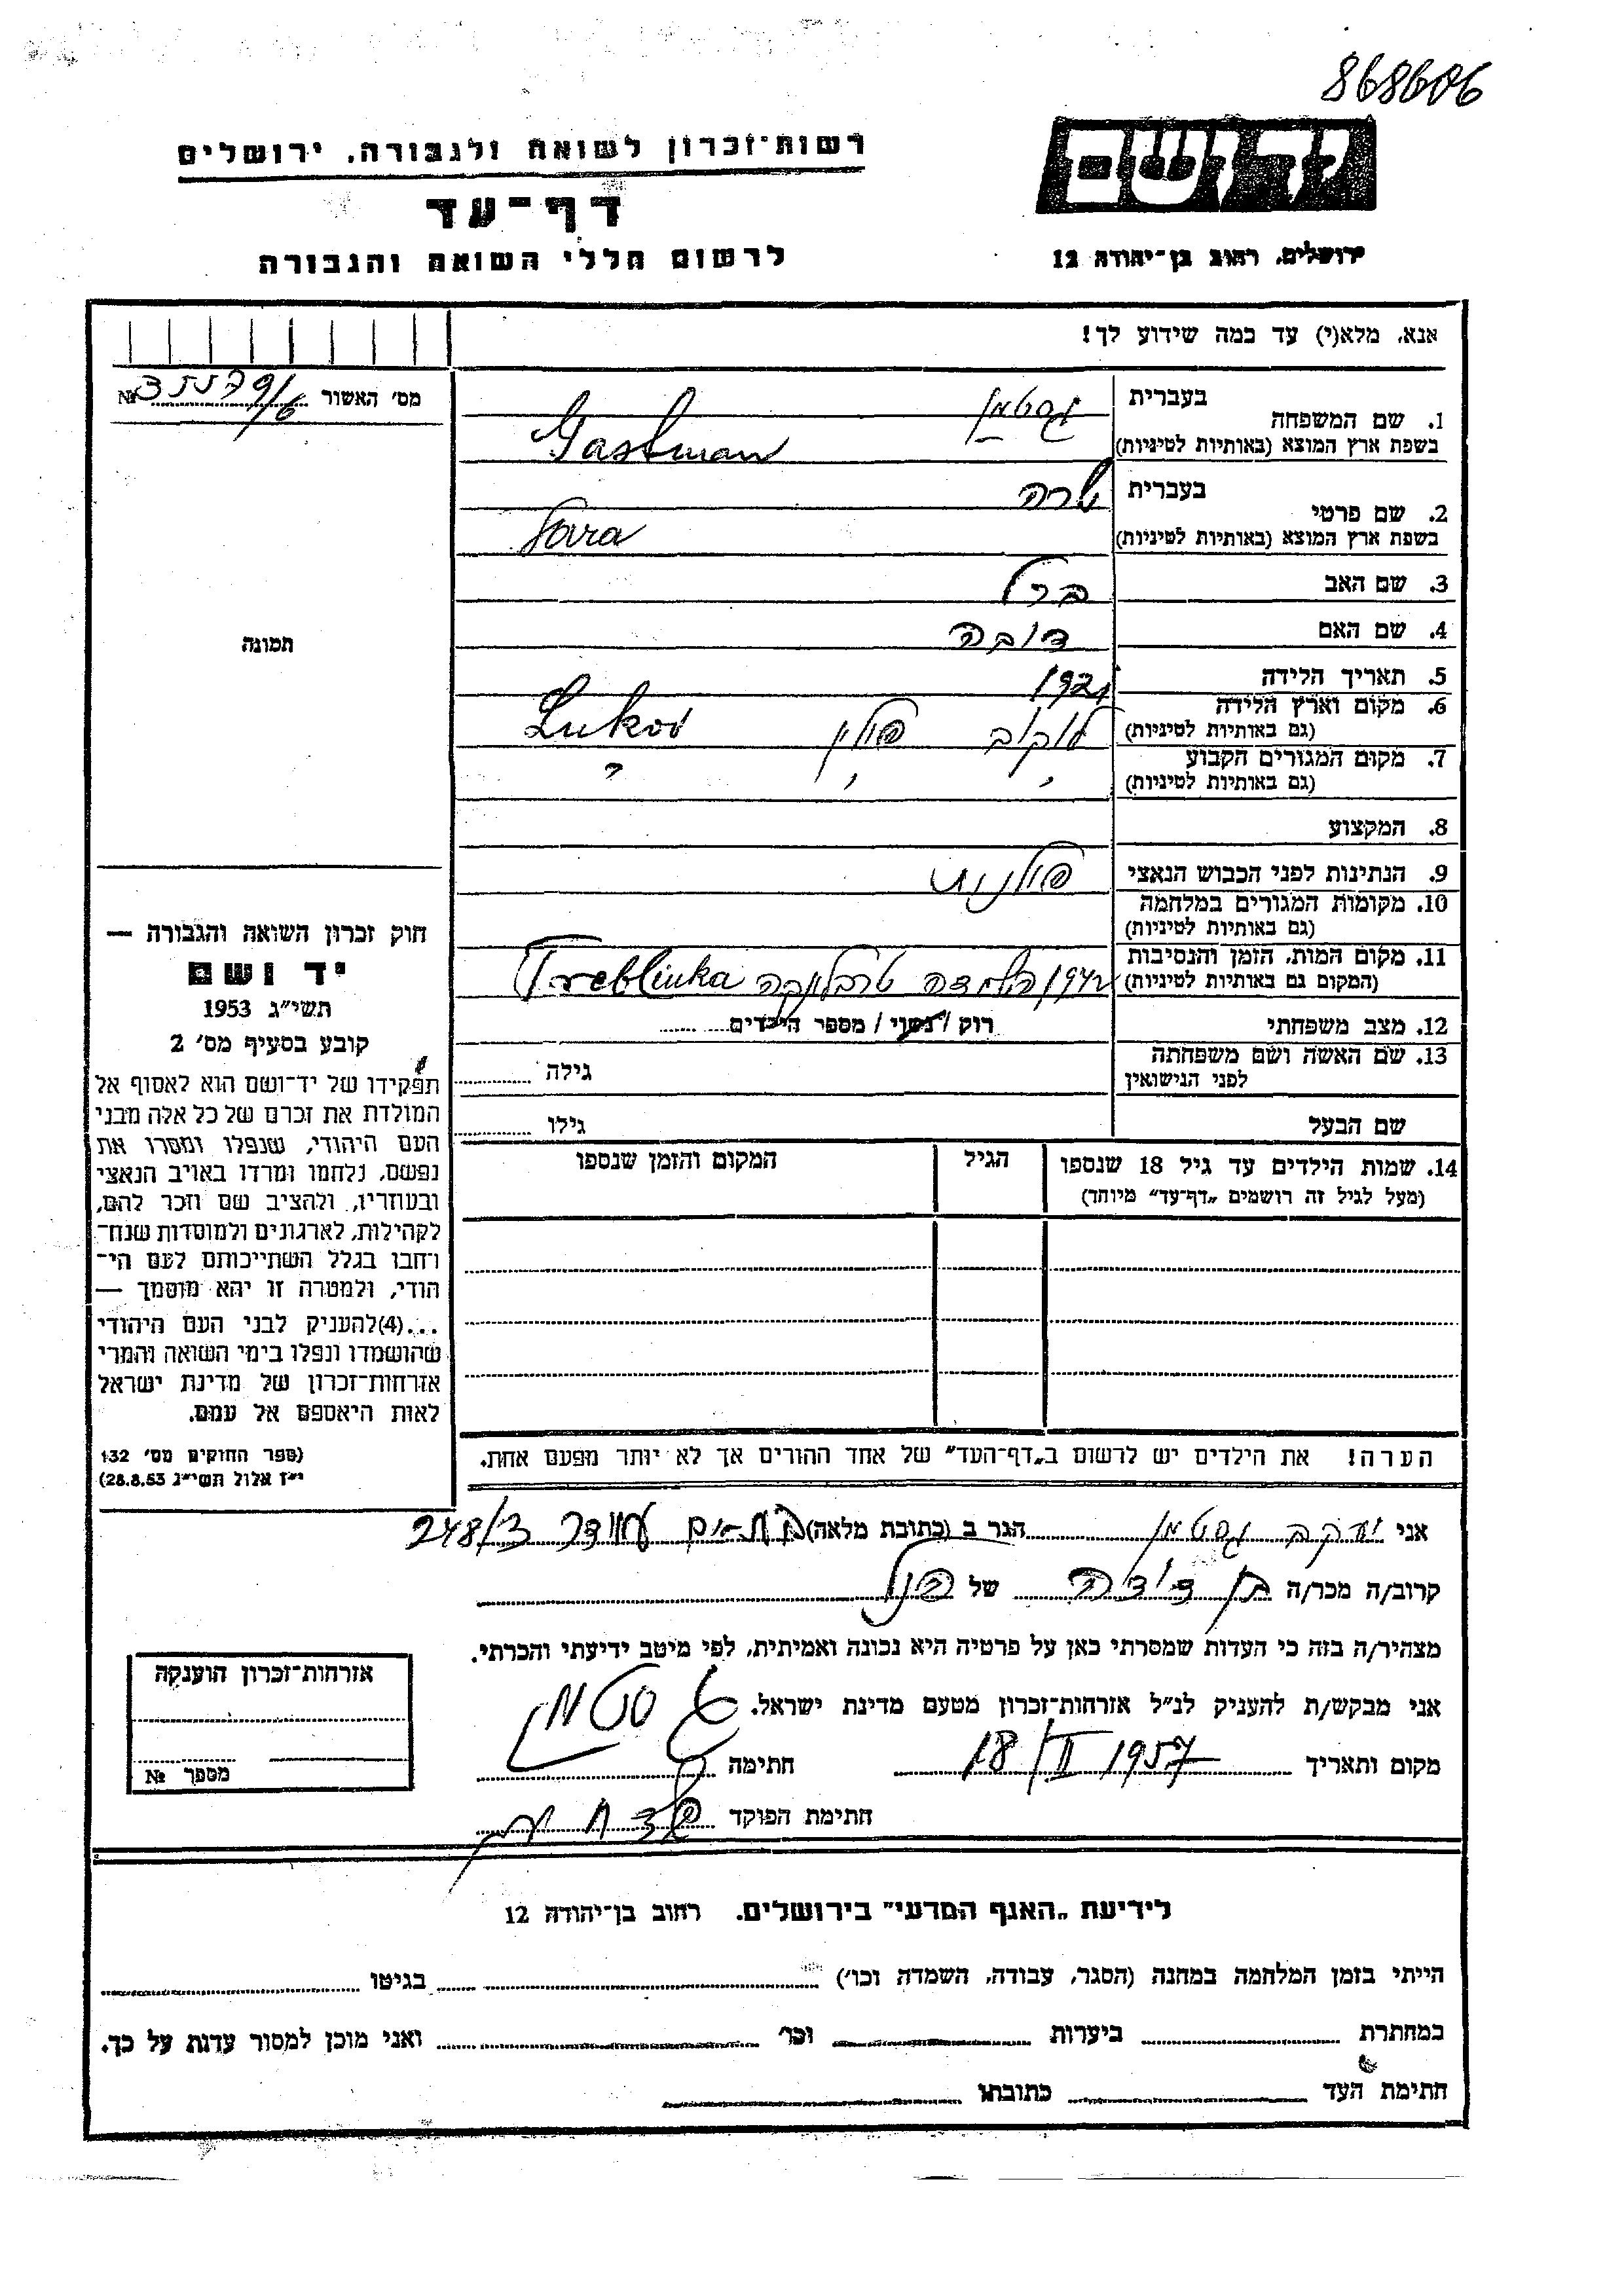 868606
רשות־זכרון לשואה ולגבורה, ירושלים
יד ושם
דף־עד
לרשום חללי השואה והגבורה
ירושלים, רחוב בן־יהודה 12
אנא, מלא(י) עד כמה שידוע לך!
מס׳ האשור №
1. שם המשפחה
בעברית גסטמן
בשפת ארץ המוצא (באותיות לטיניות) Gastman
2. שם פרטי
בעברית שרה
בשפת ארץ המוצא (באותיות לטיניות) Sara
3. שם האב ברל
4. שם האם דובה
5. תאריך הלידה 1921
6. מקום וארץ הלידה
(גם באותיות לטיניות) לוקוב פולין Lukov
7. מקום המגורים הקבוע
(גם באותיות לטיניות) " " "
8. המקצוע
9. הנתינות לפני הכבוש הנאצי פולנית
10. מקומות המגורים במלחמה
(גם באותיות לטיניות)
11. מקום המות, הזמן והנסיבות
(המקום גם באותיות לטיניות) 1942 השמדה טרבלינקה Treblinka
12. מצב משפחתי רוק / נשוי / מספר הילדים
13. שם האשה ושם משפחתה
לפני הנישואין גילה
שם הבעל גילו
14. שמות הילדים עד גיל 18 שנספו
(מעל לגיל זה רושמים „דף־עד" מיוחד)
הגיל
המקום והזמן שנספו
הערה! את הילדים יש לרשום ב„דף־העד" של אחד ההורים אך לא יותר מפעם אחת.
תמונה
חוק זכרון השואה והגבורה —
יד ושם
תשי״ג 1953
קובע בסעיף מס׳ 2
תפקידו של יד־ושם הוא לאסוף אל
המולדת את זכרם של כל אלה מבני
העם היהודי, שנפלו ומסרו את
נפשם, נלחמו ומרדו באויב הנאצי
ובעוזריו, ולהציב שם וזכר להם,
לקהילות, לארגונים ולמוסדות שנח־
רחבו בגלל השתייכותם לעם הי־
הודי, ולמטרה זו יהא מוסמך —
...(4)להעניק לבני העם היהודי
שהושמדו ונפלו בימי השואה והמרי
אזרחות־זכרון של מדינת ישראל
לאות היאספם אל עמם.
(ספר החוקים מס׳ 132
י״ז אלול תשי״ג 28.8.53)
אני יעקב גסטמן הגר ב (כתובת מלאה) 248/
קרוב/ה מכר/ה בן דודה של
מצהיר/ה בזה כי העדות שמסרתי כאן על פרטיה היא נכונה ואמיתית, לפי מיטב ידיעתי והכרתי.
אני מבקש/ת להעניק לנ״ל אזרחות־זכרון מטעם מדינת ישראל.
מקום ותאריך 18/II 1957 חתימה גסטמן
חתימת הפוקד
אזרחות־זכרון הוענקה
מספר №
לידיעת „האגף המדעי" בירושלים. רחוב בן־יהודה 12
הייתי בזמן המלחמה במחנה (הסגר, עבודה, השמדה וכו׳) בגיטו
במחתרת ביערות וכו׳ ואני מוכן למסור עדות על כך.
חתימת העד כתובתו